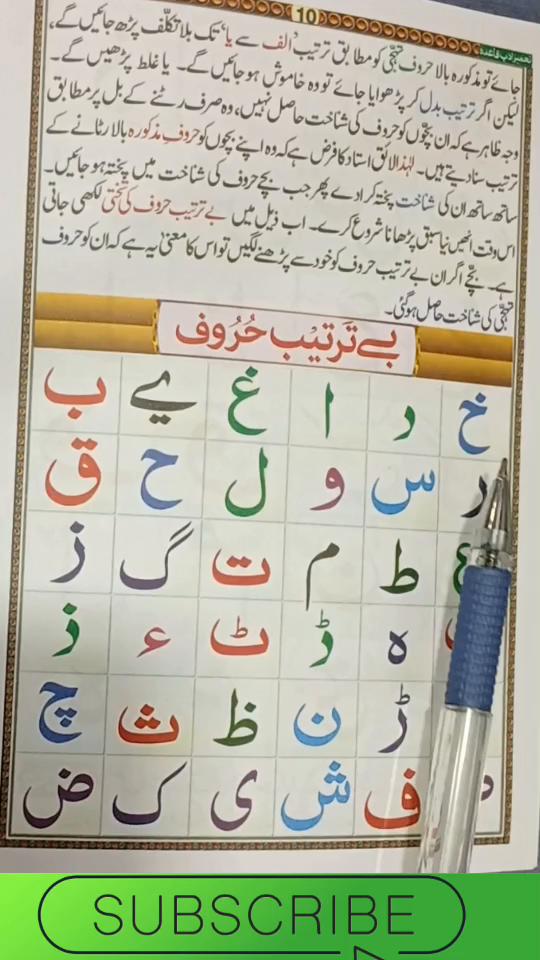 10
تعمیر ادب قاعدہ
جائے تو مذکورہ بالا حروف تہجّی کو مطابق ترتیب ’الف سے یا‘ تک بلا تکلّف پڑھ جائیں گے،
لیکن اگر ترتیب بدل کر پڑھوایا جائے تو وہ خاموش ہو جائیں گے۔ یا غلط پڑھیں گے۔
وجہ ظاہر ہے کہ ان بچّوں کو حروف کی شناخت حاصل نہیں، وہ صرف رٹنے کے بل پر مطابق
ترتیب سنا دیتے ہیں۔ لہٰذا لائق استاد کا فرض ہے کہ وہ اپنے بچوں کو حروفِ مذکورہ بالا رٹانے کے
ساتھ ساتھ ان کی شناخت پختہ کرادے پھر جب بچے حروف کی شناخت میں پختہ ہو جائیں۔
اس وقت انھیں نیا سبق پڑھانا شروع کرے۔ اب ذیل میں بے ترتیب حروف کی تختی لکھی جاتی
ہے۔ بچّے اگر ان بے ترتیب حروف کو خود سے پڑھنے لگیں تو اس کا معنیٰ یہ ہے کہ ان کو حروف
تہجّی کی شناخت حاصل ہوگئی۔
بے تَرتِیْب حُرُوف
خ د ا غ ے ب
ر س و ل ح ق
ع ط م ت گ ز
ہ ڑ ٹ ء ذ
ڑ ن ظ ث چ
ف ش ی ک ض
SUBSCRIBE